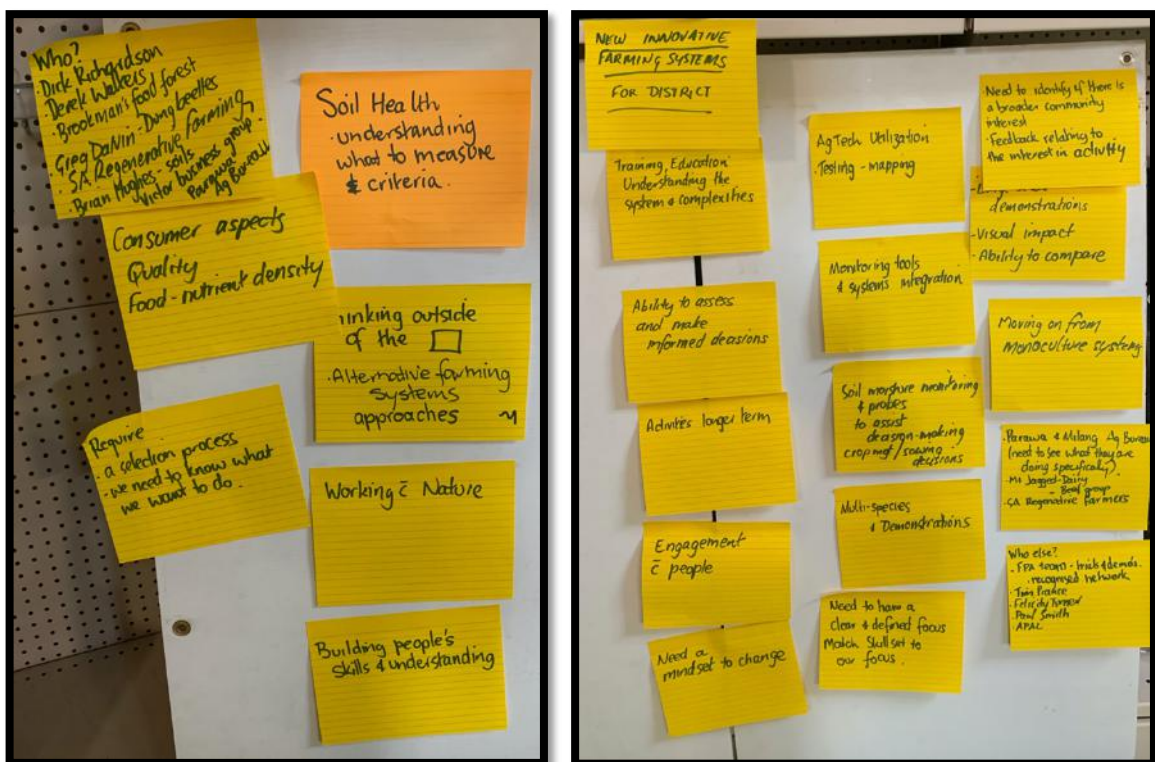 Who?
· Dick Richardson
· Derek Walters
· Brookman's food forest
· Greg DaNin - Dung beetles
· SA Regenerative farming
· Brian Hughes - soils
Victor business group -
Parawa
Ag Bureau
Consumer aspects
Quality
Food - nutrient density
Require
· a selection process
· we need to know what
we want to do.
Soil Health
· understanding
what to measure
& criteria.
hinking outside
of the
· Alternative farming
systems
approaches
Working c̄ Nature
Building people's
skills & understanding
NEW INNOVATIVE
FARMING SYSTEMS
FOR DISTRICT
Training, Education
Understanding the
system & complexities
Ability to assess
and make
informed decisions
Activities longer term
Engagement
c̄ people
Need a
mindset to change
AgTech Utilization
Testing - mapping
Monitoring tools
& systems integration
Soil moisture monitoring
& probes
to assist
decision-making
croping/sowing
decisions
Multi-species
& Demonstrations
Need to have a
clear & defined focus
Match Skillset to
our focus.
· Need to identify if there is
a broader community
interest
· Feedback relating to
the interest in activity
demonstrations
- Visual impact
- Ability to compare
Moving on from
monoculture systems
· Parawa & Milang Ag Bureau
(need to see what they are
doing specifically)
· Mt Jagged - Dairy
- Beef group
· SA Regenative farmers
Who else?
- FPA team - trials & demo's.
· recognised network
· Tim Prance
· Felicity Turner
· Paul Smith
· APAL